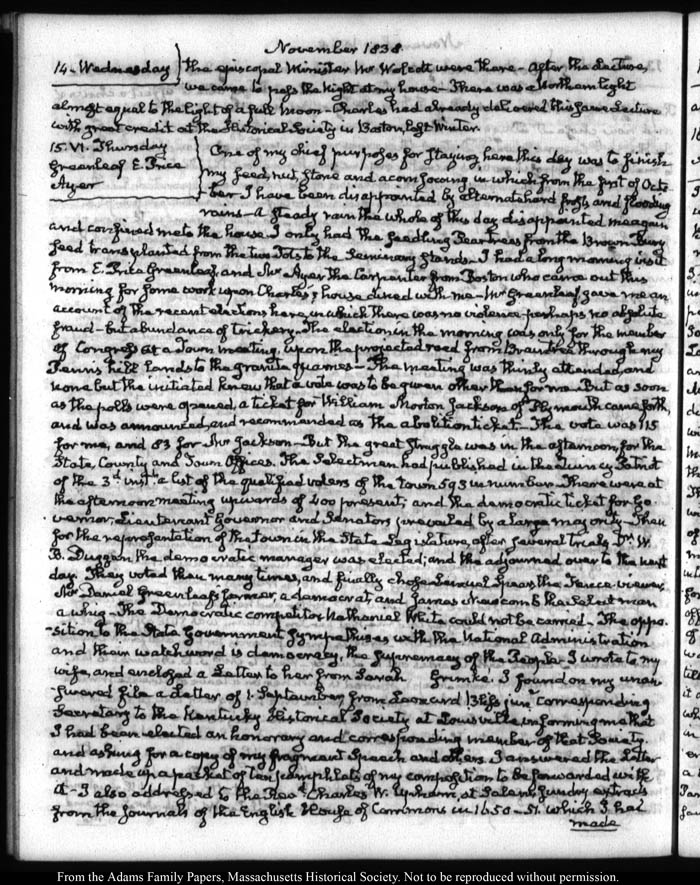 November 1838.
14. Wednesday the episcopal Minister Mr Wolcott were there - After the Lecture,
we came to pass the Night at my house - There was a Northern light
almost equal to the light of a full Moon - Charles had already delivered this same Lecture
with great credit at the Historical Society in Boston, last Winter.
15. VI. Thursday One of my chief purposes for staying here this day was to finish
Greenleaf E. Price my seed, nut, stone and acorn sowing in which from the first of Octo
Ayer ber I have been disappointed by alternate hard frosts and flooding
rains - A steady rain the whole of this day disappointed me again
and confined me to the house. I only had the seedling Peartrees from the Brown Bury
seed transplanted from the two Pots to the Seminary Stands - I had a long morning visit
from E. Price Greenleaf, and Mr Ayer the Carpenter from Boston who came out this
morning for some work upon Charles's house dined with me - Mr Greenleaf gave me an
account of the recent elections here, in which there was no violence - perhaps no absolute
fraud - but abundance of trickery - The election in the morning was only for the member
of Congress at a Town meeting, upon the projected road from Braintree through my
Penn's hill Lands to the granite quarries - The meeting was thinly attended, and
none but the initiated knew that a vote was to be given other than for me. But as soon
as the polls were opened, a ticket for William Morton Jackson of Plymouth came forth,
and was announced, and recommended as the abolition ticket - The vote was 115
for me, and 83 for Mr Jackson - But the great struggle was in the afternoon, for the
State, County and Town Offices. The Selectmen had published in the Quincy Patriot
of the 3d inst. a list of the qualified voters of the town 593 in number - There were at
the afternoon meeting upwards of 400 present; and the democratic ticket for Go
vernor, Lieutenant Governor and Senators prevailed by a large majority - Then
for the representation of the town in the State Legislature, after several trials Dr. W.
B. Duggan the democratic manager was elected; and the adjourned over to the next
day. They voted then many times, and finally chose Lemuel Spear the Fence viewer,
Mr Daniel Greenleaf's farmer, a democrat, and James Newcomb the Select man
a whig - The Democratic competitor Nathaniel White could not be carried - The oppo
sition to the State Government sympathises with the National Administration
and their watchword is democracy, the supremacy of the People - I wrote to my
wife, and enclosed a Letter to her from Sarah Grimke. I found on my unan
swered file a Letter of 1. September from Leonard Bliss junr corresponding
Secretary to the Kentucky Historical Society at Louisville informing me that
I had been elected an honorary and corresponding member of that Society
and asking for a copy of my fragment Speech and others. I answered the Letter
and made up a packet of ten pamphlets of my composition to be forwarded with
it - I also addressed to the Revd Charles W. Upham, at Salem, sundry extracts
from the Journals of the English House of Commons in 1650 - 51. which I had
made
From the Adams Family Papers, Massachusetts Historical Society. Not to be reproduced without permission.